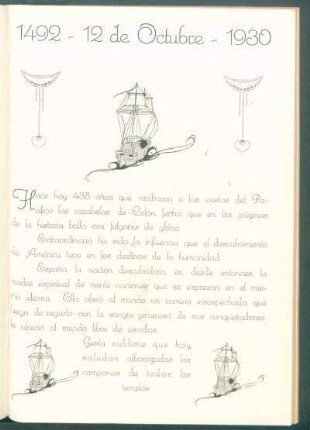 1492 - 12 de Octubre - 1930
Hace hoy 438 años que arribaron a las costas del Pa-
cífico las carabelas de Colón, fecha que en las páginas
de la historia brilla con fulgores de gloria.
Extraordinaria ha sido la influencia que el descubrimiento
de América tuvo en los destinos de la humanidad.
España la nación descubridora, es desde entonces la
madre espiritual de veinte naciones que se expresan en el mis-
mo idioma. Ella abrió al mundo un camino insospechado, que
luego de regarlo con la sangre generosa de sus conquistadores
lo cedió al mundo libre de escollos.
Gesta sublime que hoy
saludan alborozadas las
campanas de todos los
templos